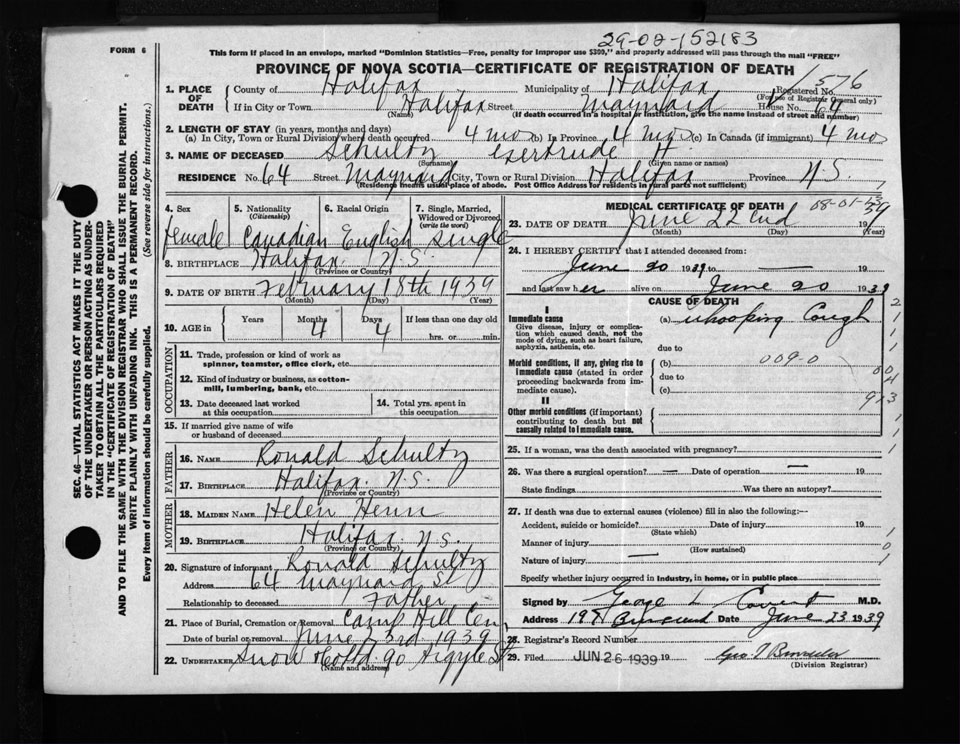 29-02-152183
FORM 6
This form if placed in an envelope, marked "Dominion Statistics—Free, penalty for improper use $300," and properly addressed will pass through the mail "FREE"
PROVINCE OF NOVA SCOTIA—CERTIFICATE OF REGISTRATION OF DEATH
1. PLACE OF DEATH
County of Halifax Municipality of Halifax Registered No. 1576
(For use of Registrar General only)
If in City or Town Halifax Street Maynard House No. 64
(Name) (If death occurred in a hospital or institution, give the name instead of street and number)
2. LENGTH OF STAY (in years, months and days)
(a) In City, Town or Rural Division where death occurred 4 mos (b) In Province 4 mos (c) In Canada (if immigrant) 4 mos
3. NAME OF DECEASED Schultz Gertrude H.
(Surname) (Given name or names)
RESIDENCE No. 64 Street Maynard City, Town or Rural Division Halifax Province N.S.
(Residence means usual place of abode. Post Office Address for residents in rural parts not sufficient)
4. Sex female
5. Nationality (Citizenship) Canadian
6. Racial Origin English
7. Single, Married, Widowed or Divorced (write the word) single
8. BIRTHPLACE Halifax N.S.
(Province or Country)
9. DATE OF BIRTH February 18th 1939
(Month) (Day) (Year)
10. AGE in Years Months 4 Days 4 If less than one day old
hrs. or min.
OCCUPATION
11. Trade, profession or kind of work as spinner, teamster, office clerk, etc.
12. Kind of industry or business, as cotton-mill, lumbering, bank, etc.
13. Date deceased last worked at this occupation
14. Total yrs. spent in this occupation
15. If married give name of wife or husband of deceased
FATHER
16. NAME Ronald Schultz
17. BIRTHPLACE Halifax N.S.
(Province or Country)
MOTHER
18. MAIDEN NAME Helen Henn
19. BIRTHPLACE Halifax N.S.
(Province or Country)
20. Signature of informant Ronald Schultz
Address 64 Maynard St
Relationship to deceased Father
21. Place of Burial, Cremation or Removal Camp Hill Cem
Date of burial or removal June 23rd 1939
22. UNDERTAKER Snow & Co Ltd. 90 Argyle St
(Name and address)
MEDICAL CERTIFICATE OF DEATH
08-01-13
23. DATE OF DEATH June 22nd 1939
(Month) (Day) (Year)
24. I HEREBY CERTIFY that I attended deceased from:
June 20 1939 to — 19
and last saw her alive on June 20 1939
CAUSE OF DEATH
I
Immediate cause
Give disease, injury or complication which caused death, not the mode of dying, such as heart failure, asphyxia, asthenia, etc.
(a) Whooping Cough
due to
Morbid conditions, if any, giving rise to immediate cause (stated in order proceeding backwards from immediate cause).
(b) 009-0
due to
(c)
II
Other morbid conditions (if important) contributing to death but not causally related to immediate cause.
25. If a woman, was the death associated with pregnancy?
26. Was there a surgical operation? — Date of operation — 19
State findings Was there an autopsy?
27. If death was due to external causes (violence) fill in also the following:—
Accident, suicide or homicide? Date of injury 19
(State which)
Manner of injury
(How sustained)
Nature of injury —
Specify whether injury occurred in industry, in home, or in public place
Signed by George L M.D.
Address June 23 1939
28. Registrar's Record Number
29. Filed JUN 26 1939 19
(Division Registrar)
SEC. 46—VITAL STATISTICS ACT MAKES IT THE DUTY
OF THE UNDERTAKER OR PERSON ACTING AS UNDER-
TAKER TO OBTAIN ALL THE PARTICULARS REQUIRED
IN THE "CERTIFICATE OF REGISTRATION OF DEATH"
AND TO FILE THE SAME WITH THE DIVISION REGISTRAR WHO SHALL ISSUE THE BURIAL PERMIT.
WRITE PLAINLY WITH UNFADING INK. THIS IS A PERMANENT RECORD.
Every item of information should be carefully supplied. (See reverse side for instructions.)